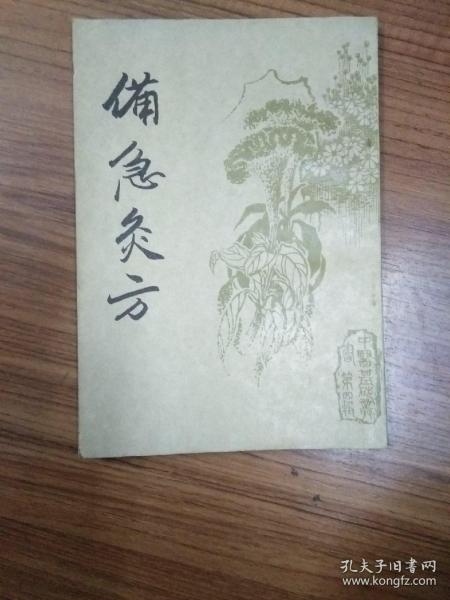 備急灸方
中醫基礎叢書
第四輯
孔夫子旧书网
www.kongfz.com